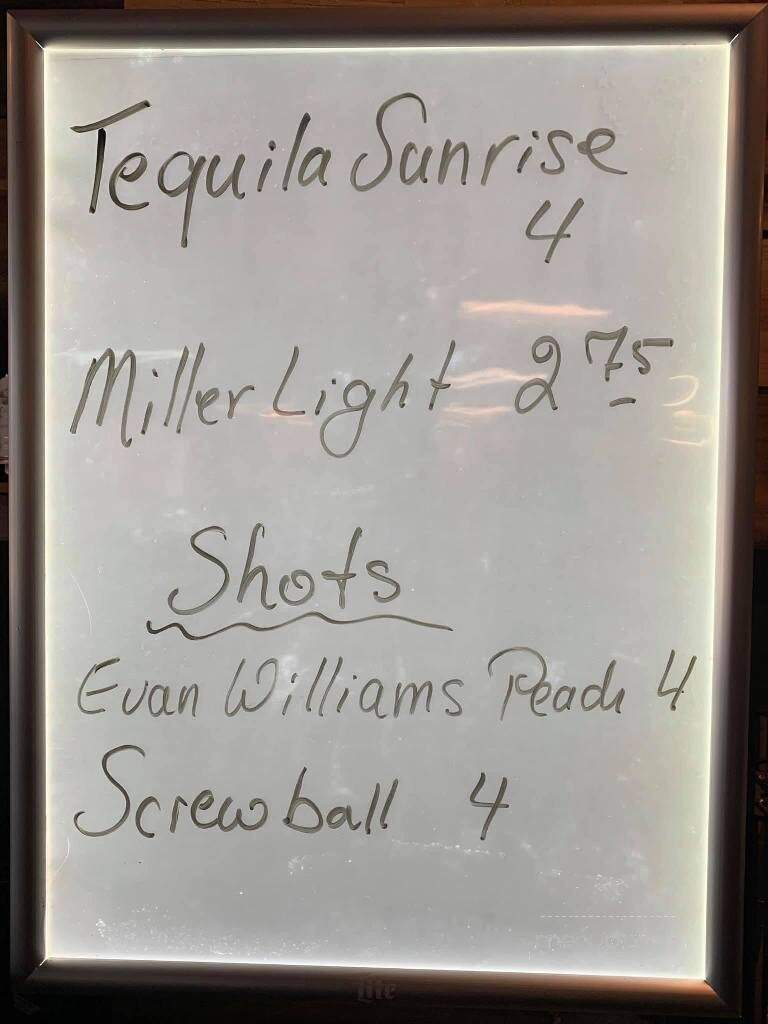 Tequila Sunrise
4
Miller Light 2 75
Shots
Evan Williams Peach 4
Screwball 4
Lite